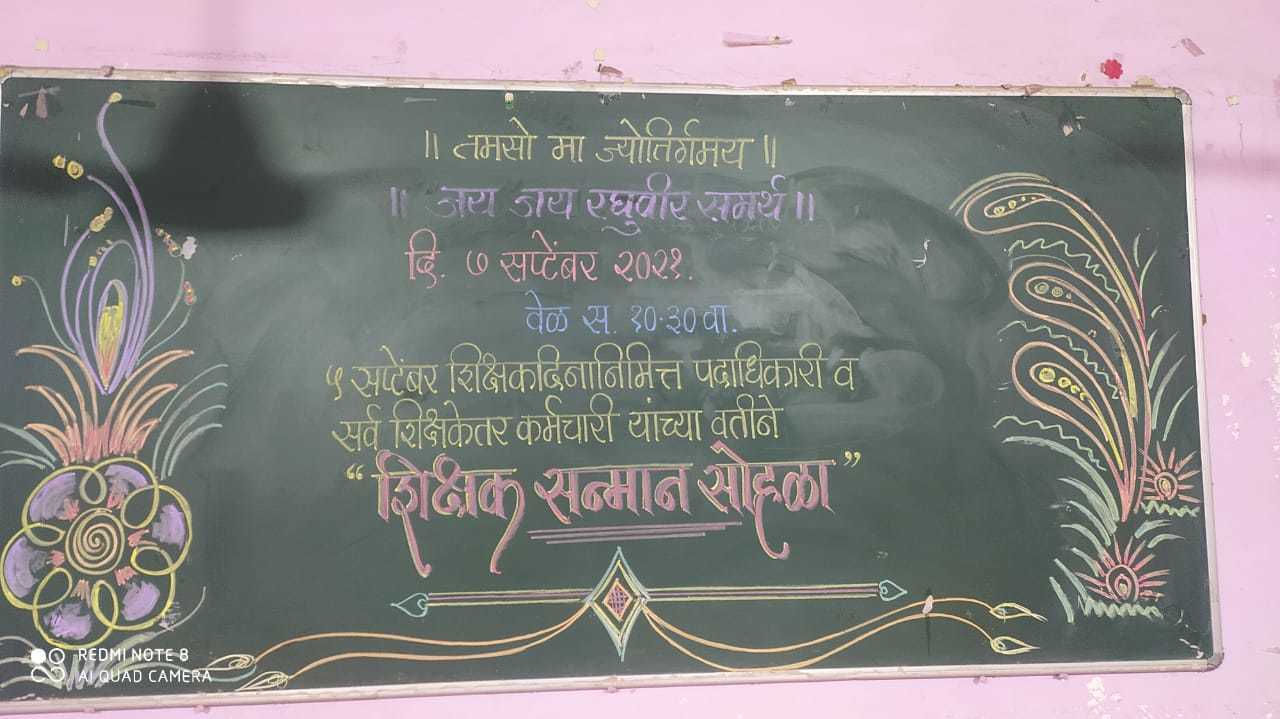 ॥ तमसो मा ज्योतिर्गमय ॥
॥ जय जय रघुवीर समर्थ ॥
दि. ७ सप्टेंबर २०२१.
वेळ स. १०.३० वा.
५ सप्टेंबर शिक्षकदिनानिमित्त पदाधिकारी व
सर्व शिक्षकेतर कर्मचारी यांच्या वतीने
“शिक्षक सन्मान सोहळा”
REDMI NOTE 8
AI QUAD CAMERA